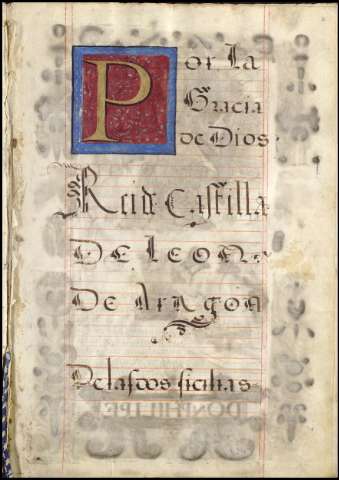 Por La
Gracia
de Dios
Rei de Castilla
De Leon.
De Aragon
De las dos sicilias
DON PHILIPE